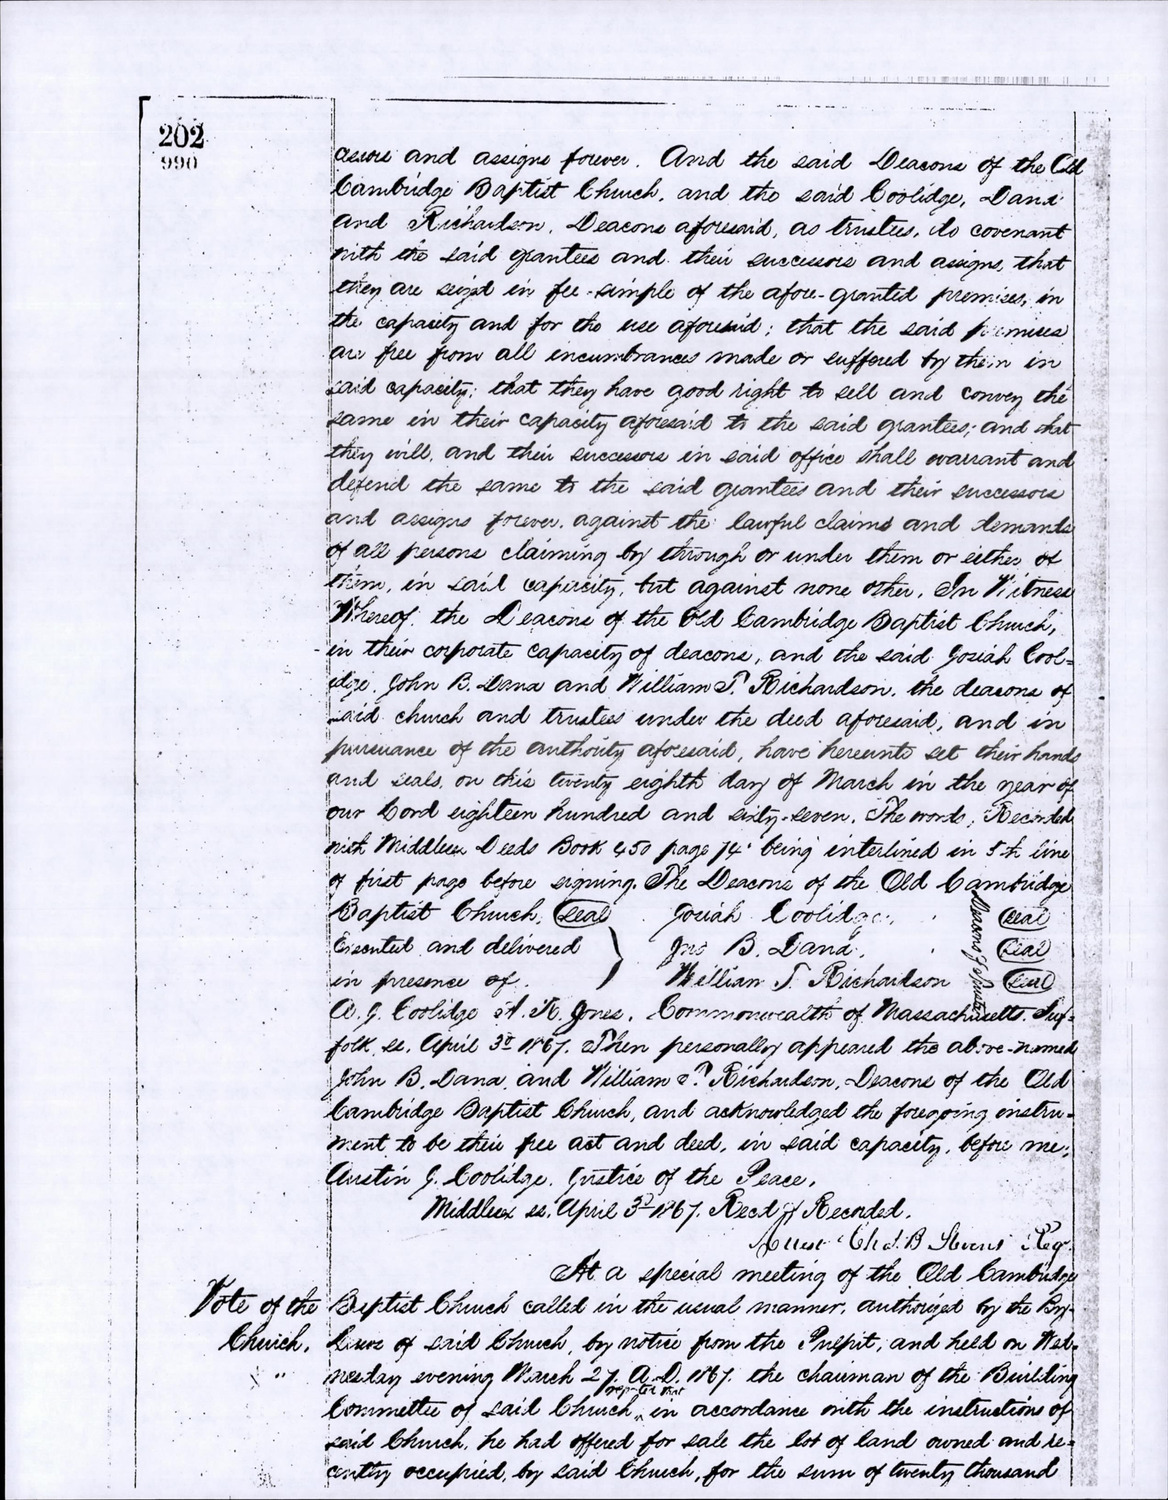 202
990
cessors and assigns forever. And the said Deacons of the Old
Cambridge Baptist Church, and the said Coolidge, Dana
and Richardson, Deacons aforesaid, as trustees, do covenant
with the said grantees and their successors and assigns, that
they are seized in fee-simple of the afore-granted premises, in
the capacity and for the use aforesaid; that the said premises
are free from all incumbrances made or suffered by them in
said capacity; that they have good right to sell and convey the
same in their capacity aforesaid to the said grantees; and that
they will, and their successors in said office shall warrant and
defend the same to the said grantees and their successors
and assigns forever, against the lawful claims and demands
of all persons claiming by through or under them or either of
them, in said capacity, but against none other. In Witness
Whereof, the Deacons of the Old Cambridge Baptist Church,
in their corporate capacity of deacons, and the said Josiah Cool=
idge, John B. Dana and William T. Richardson, the deacons of
said church and trustees under the deed aforesaid, and in
pursuance of the authority aforesaid, have hereunto set their hands
and seals, on this twenty eighth day of March in the year of
our Lord eighteen hundred and sixty-seven. The words, "Recorded
with Middlesex Deeds Book 450 page 74" being interlined in 5th line
of first page before signing. The Deacons of the Old Cambridge
Baptist Church. (seal) Josiah Coolidge. (seal)
Executed and delivered Jno B. Dana. (seal)
in presence of. William T. Richardson (seal)
Deacons &
A. J. Coolidge A. R. Jones. Commonwealth of Massachusetts. Suf=
folk, ss. April 3d 1867. Then personally appeared the above-named
John B. Dana, and William T. Richardson, Deacons of the Old
Cambridge Baptist Church, and acknowledged the foregoing instru=
ment to be their free act and deed, in said capacity, before me,
Austin J. Coolidge. Justice of the Peace.
Middlesex ss. April 3d 1867. Recd & Recorded.
Attest Chas. B Stevens Reg.
At a special meeting of the Old Cambridge
Vote of the Church.
Baptist Church called in the usual manner, authorized by the By-
Laws of said Church, by notice from the Pulpit, and held on Wed-
nesday evening March 27, A.D. 1867. the chairman of the Building
reported that
Committee of said Church, in accordance with the instructions of
said Church, he had offered for sale the lot of land owned and re=
cently occupied, by said Church, for the sum of twenty thousand